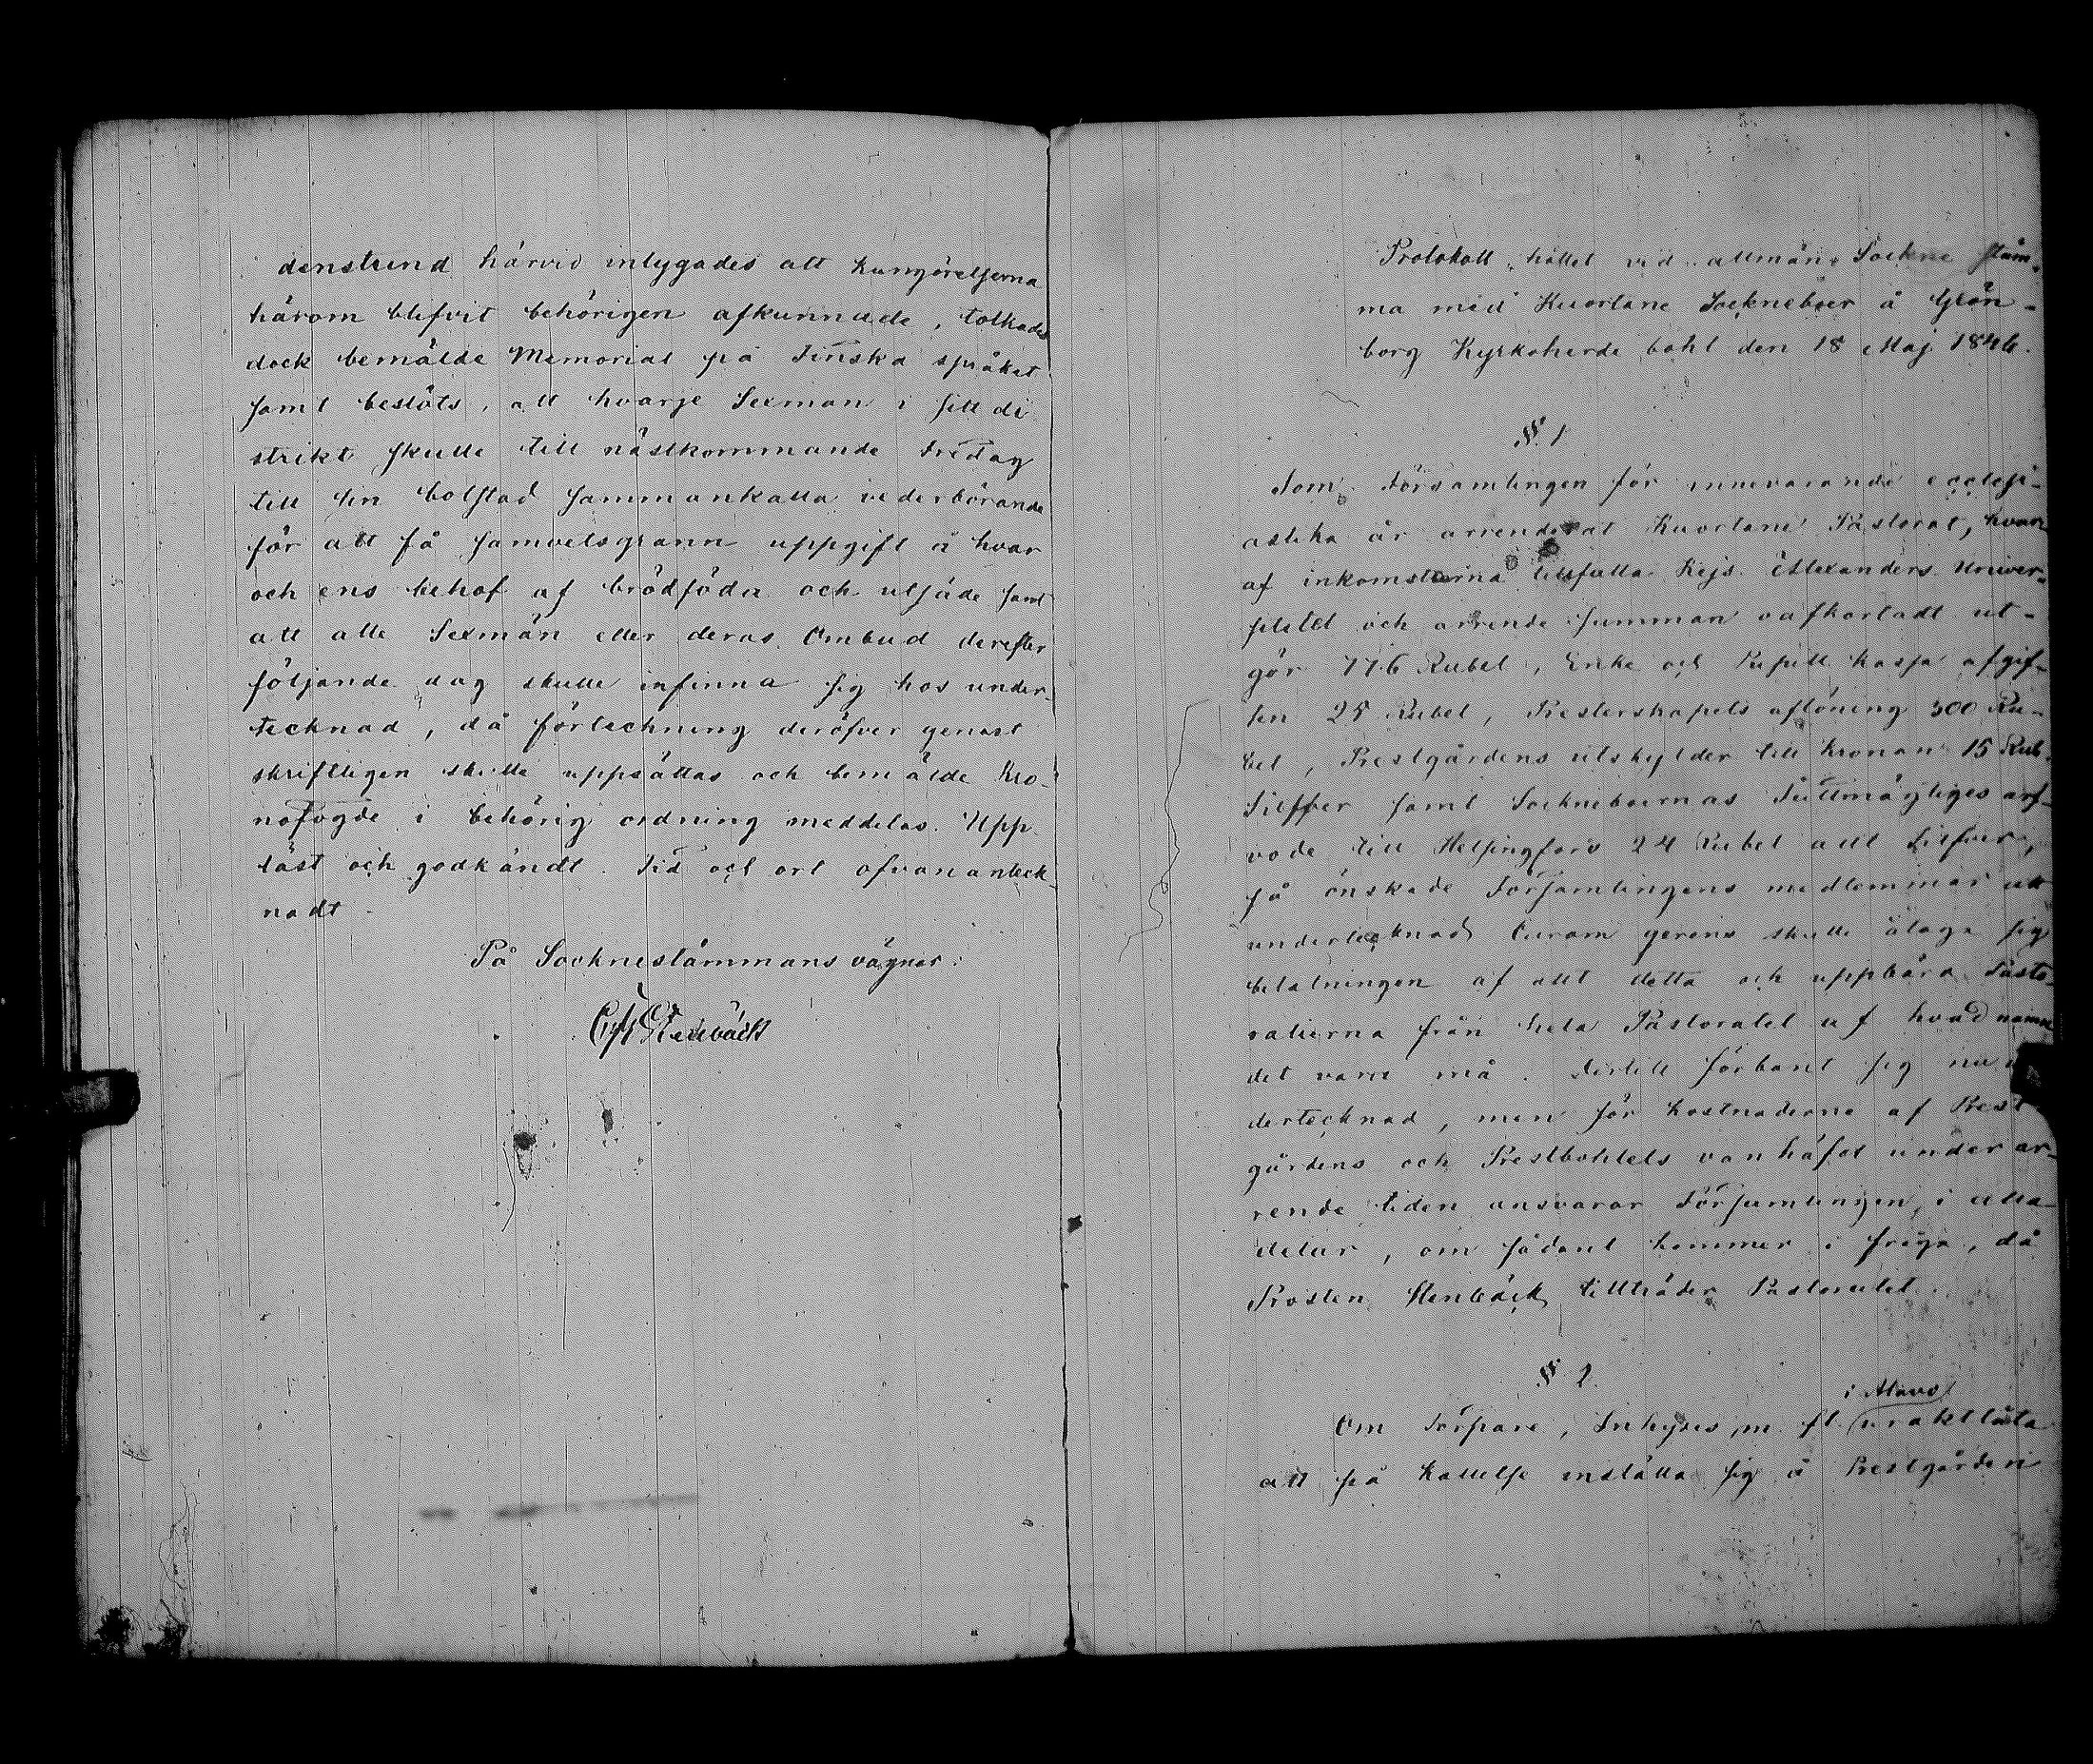 denstund härvid intygades att kungörelserna
härom blifvit behörigen afkunnade, tolkades
dock bemälde Memorial på Finska språket
samt beslöts, att hvarje Sexman i sitt di
strikt skulle till nästkommande Fredag
till sin bolstad sammankalla vederbörande
för att få samvetsgrann uppgift å hvar
och ens behof af brödföda och utsäde samt
att alle Sexmän eller deras Ombud derefter
följande dag skulle infinna sig hos under-
tecknad, då förteckning deröfver genast
skriftligen skulle uppsättas och bemälde Kro-
nofogde i behörig ordning meddelas. Upp
läst och godkändt. Tid och ort ofvananteck-
nadt.
På Socknestämmans vägnar:
Stenbäck
Protokoll, hållet vid allmän Sockne stäm-
ma med Kuortane Sockneboer å Grön-
borg Kyrkoherde bohl den 18 Maj 1846.
§. 1
Som Församlingen för innevarande ecclesi-
astika år arrenderat Kuortane Pastorat, hvar-
af inkomsterna tillfalla Kejs. Alexanders Univer-
sitetet och arrende summan oafkortadt ut-
gör 776 Rubel, Enke och Pupill kassa afgif-
ten 25 Rubel, Presterskapets aflöning 300 Ru-
bel, Prestgårdens utskylder till kronan 15 Rub.
Silfver samt Sockneboernas Fullmägtiges arf-
vode till Helsingfors 24 Rubel allt Silfver,
så önskade Församlingens medlemmar att
undertecknad Curam gerens skulle åtaga sig
betalningen af allt detta och uppbära Pasto-
ralierna från hela Pastoratet af hvad namn
det vara må. Dertill förbant sig nu
dertecknad, men för kostnaderna af Prest
gårdens och Prestbohlets vanhäfd under ar-
rende tiden ansvarar Församlingen, i alla
delar, om sådant kommer i fråga, då
Prosten Stenbäck tillträder Pastoratet.
§ 2
i Alavo
Om Torpare, Inhyses m. fl. uraktlåta
att på kallelse inställa sig å Prestgården